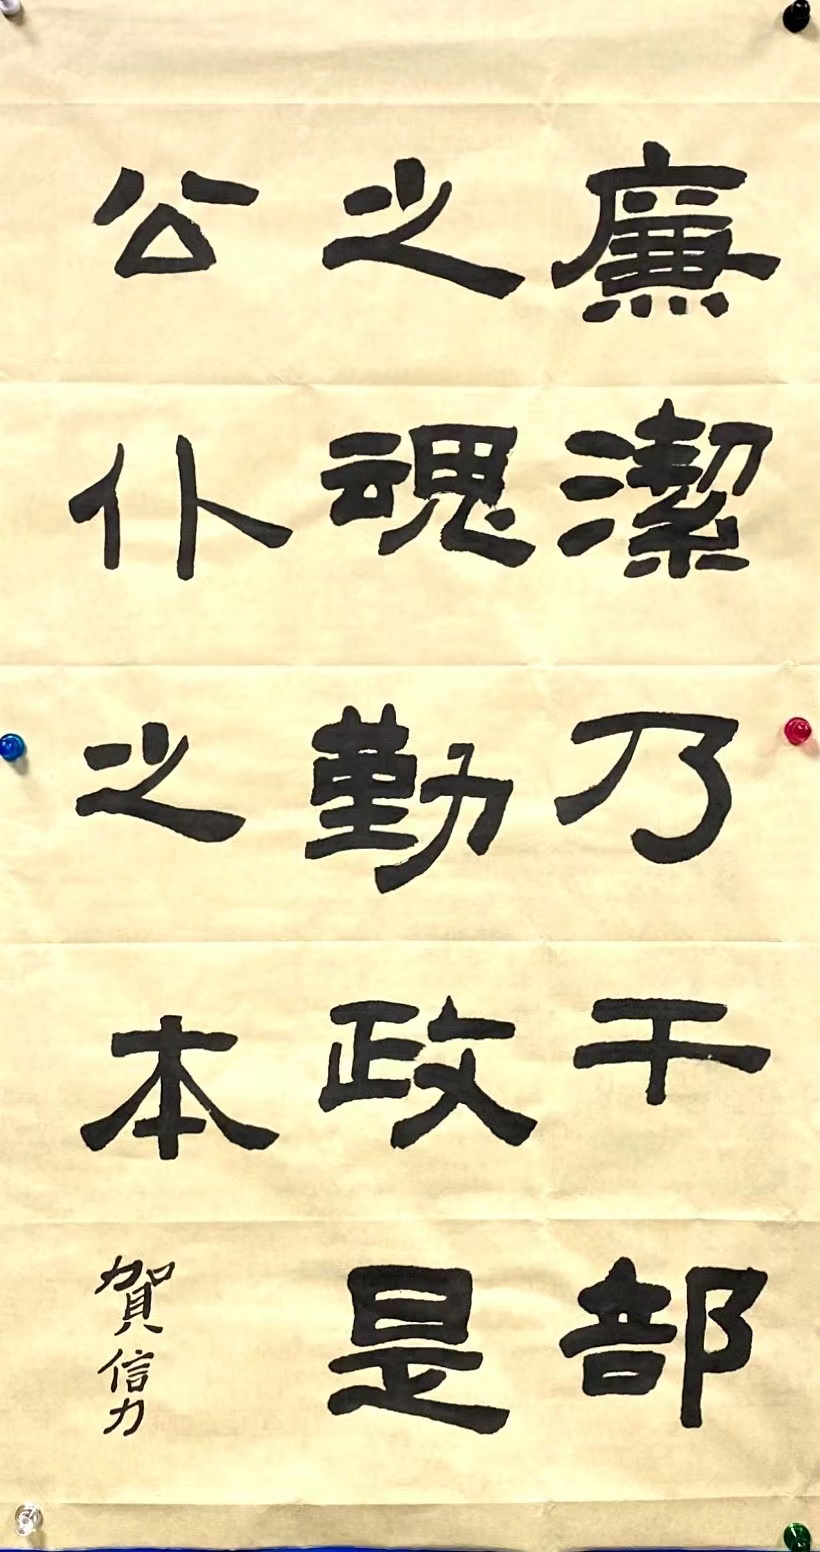 廉潔乃干部
之魂勤政是
公仆之本
賀信力